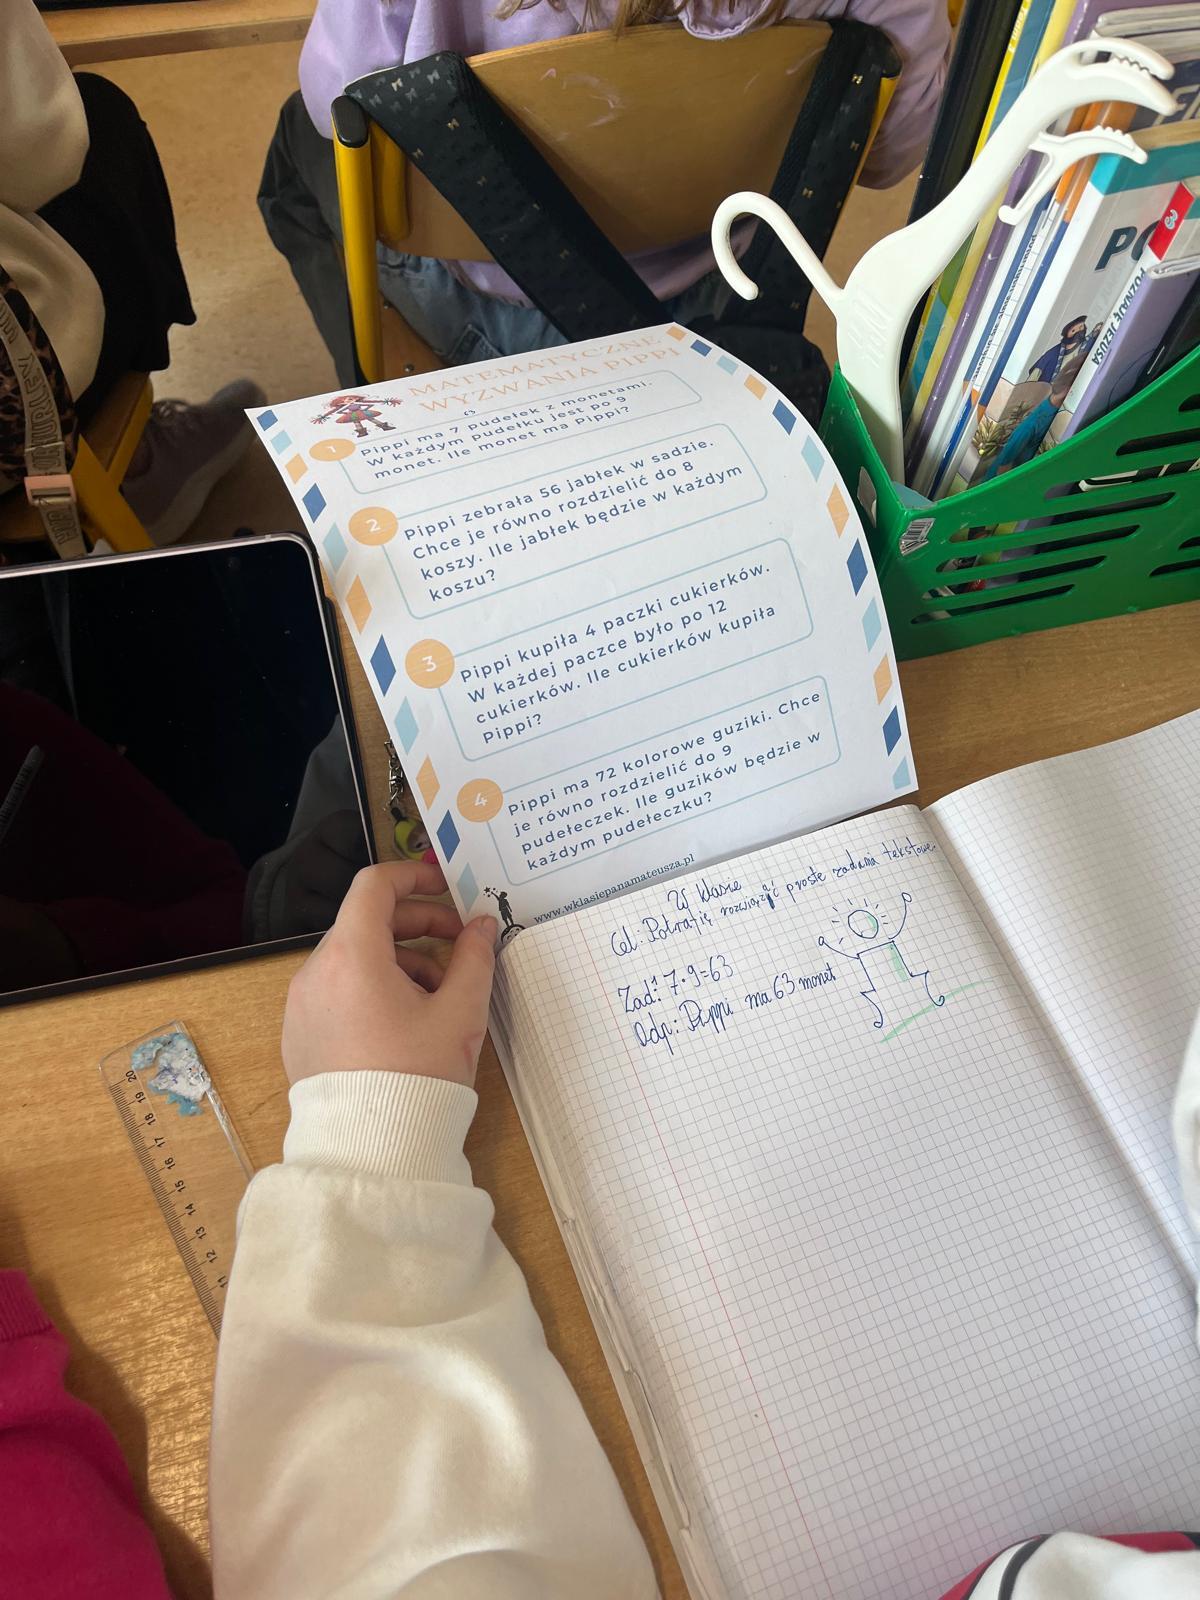 MATEMATYCZNE
WYZWANIA PIPPI
1
Pippi ma 7 pudełek z monetami.
W każdym pudełku jest po 9
monet. Ile monet ma Pippi?
2
Pippi zebrała 56 jabłek w sadzie.
Chce je równo rozdzielić do 8
koszy. Ile jabłek będzie w każdym
koszu?
3
Pippi kupiła 4 paczki cukierków.
W każdej paczce było po 12
cukierków. Ile cukierków kupiła
Pippi?
4
Pippi ma 72 kolorowe guziki. Chce
je równo rozdzielić do 9
pudełeczek. Ile guzików będzie w
każdym pudełeczku?
www.wklasiepanamateusza.pl
W klasie
Cel: Potrafię rozwiązać proste zadania tekstowe.
Zad. 1 7·9=63
Odp: Pippi ma 63 monet
POZNAJĘ JEZUSA
3
20 19 18 17 16 15 14 13 12 11